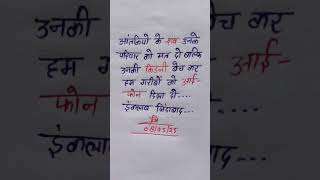 आतंकियों के शव उनके
परिवार को मत दो बल्कि
उनकी किडनी बेच कर
हम गरीबों को आई-
फोन दिला दो....
इंकलाब जिंदाबाद...
08/05/25
उनकी
बेच कर
आई-
फोन
इंकलाब